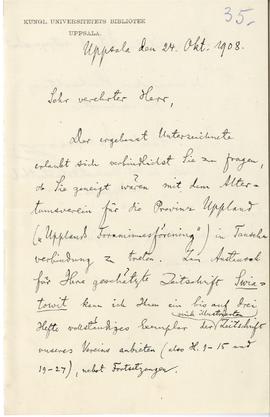 35.-
KUNGL. UNIVERSITETETS BIBLIOTEK
UPPSALA.
Uppsala den 24. Okt. 1908.
Sehr verehrter Herr,
Der ergebenst Unterzeichnete
erlaubt sich verbindlichst Sie zu fragen,
ob Sie geneigt wären mit dem Alter-
tumsverein für die Provinz Uppland
("Upplands Fornminnesförening") in Tausch-
verbindung zu treten. Im Austausch
für Ihre geschätzte Zeitschrift Swia-
towit kann ich Ihnen ein bis auf drei
Hefte vollständiges Exemplar der reich illustrierten Zeitschrift
unseres Vereins anbieten (also H. 1-15 und
19-27), nebst Fortsetzungen.